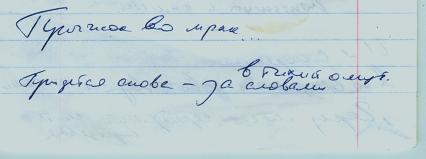 Прыжок во мрак...
Придётся снова – за словами
в тихий омут.